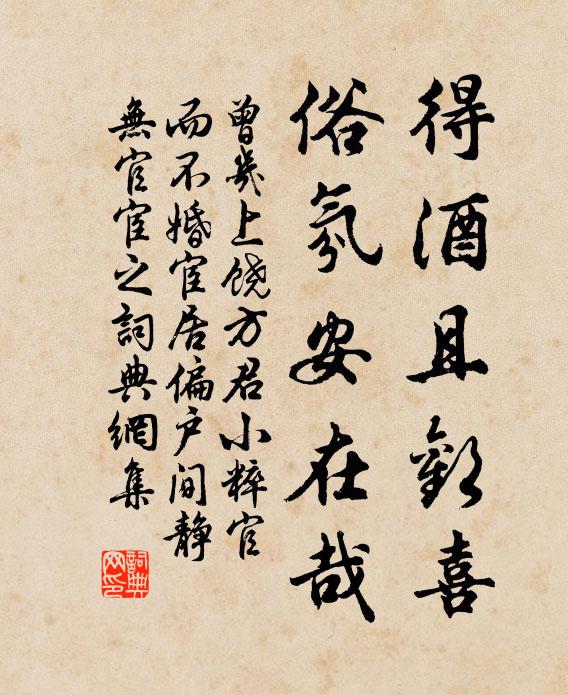 得酒且歡喜
俗氛安在哉
曾幾上饒方君小粹官
而不婚宦居偏户间静
無官宦之詞典網集
詞典
网印